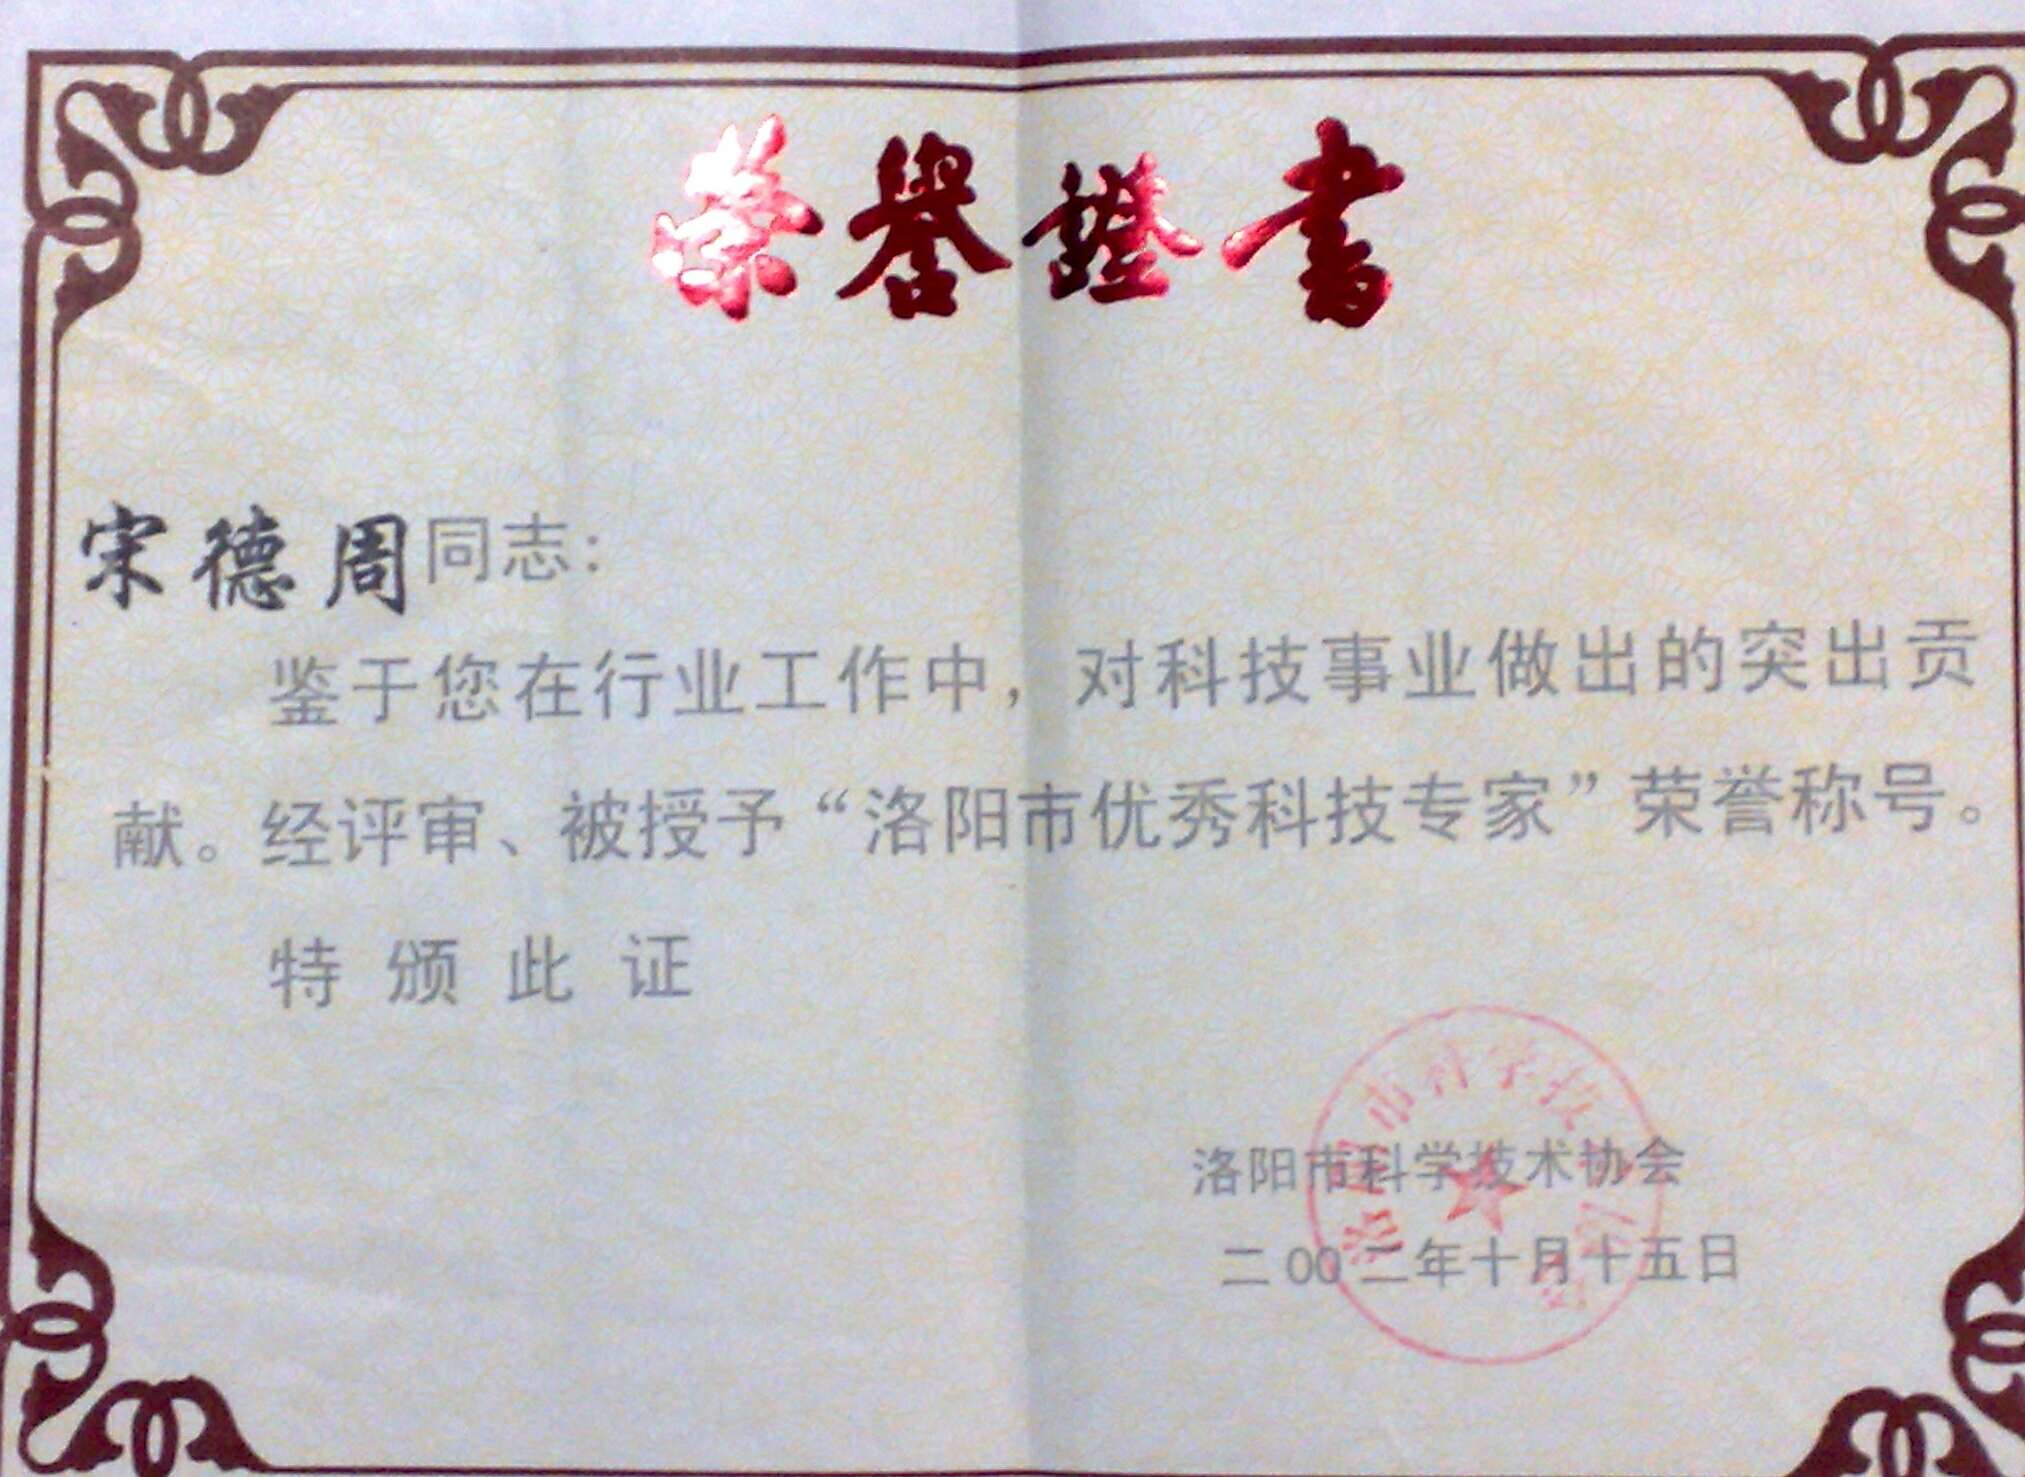 荣誉證書
宋德周同志：
鉴于您在行业工作中，对科技事业做出的突出贡
献。经评审、被授予“洛阳市优秀科技专家”荣誉称号。
特颁此证
洛阳市科学技术协会
二00二年十月十五日